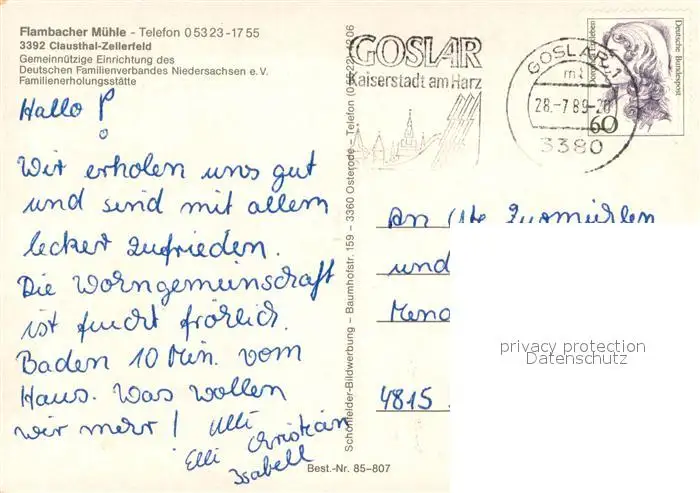 Flambacher Mühle - Telefon 0 53 23 - 17 55
3392 Clausthal-Zellerfeld
Gemeinnützige Einrichtung des
Deutschen Familienverbandes Niedersachsen e.V.
Familienerholungsstätte
Hallo !
Wir erholen uns gut
und sind mit allem
lecker zufrieden.
Die Wohngemeinschaft
ist feucht fröhlich.
Baden 10 Min. vom
Haus. Was wollen
wir mehr! Ulli
Elli Christian
Isabell
Best.-Nr. 85-807
Schönfelder-Bildwerbung - Baumhofstr. 159 - 3360 Osterode - Telefon
GOSLAR
Kaiserstadt am Harz
GOSLAR 1
mt
28.-7.89-20
3380
Deutsche Bundespost
60
An
und
4815
privacy protection
Datenschutz